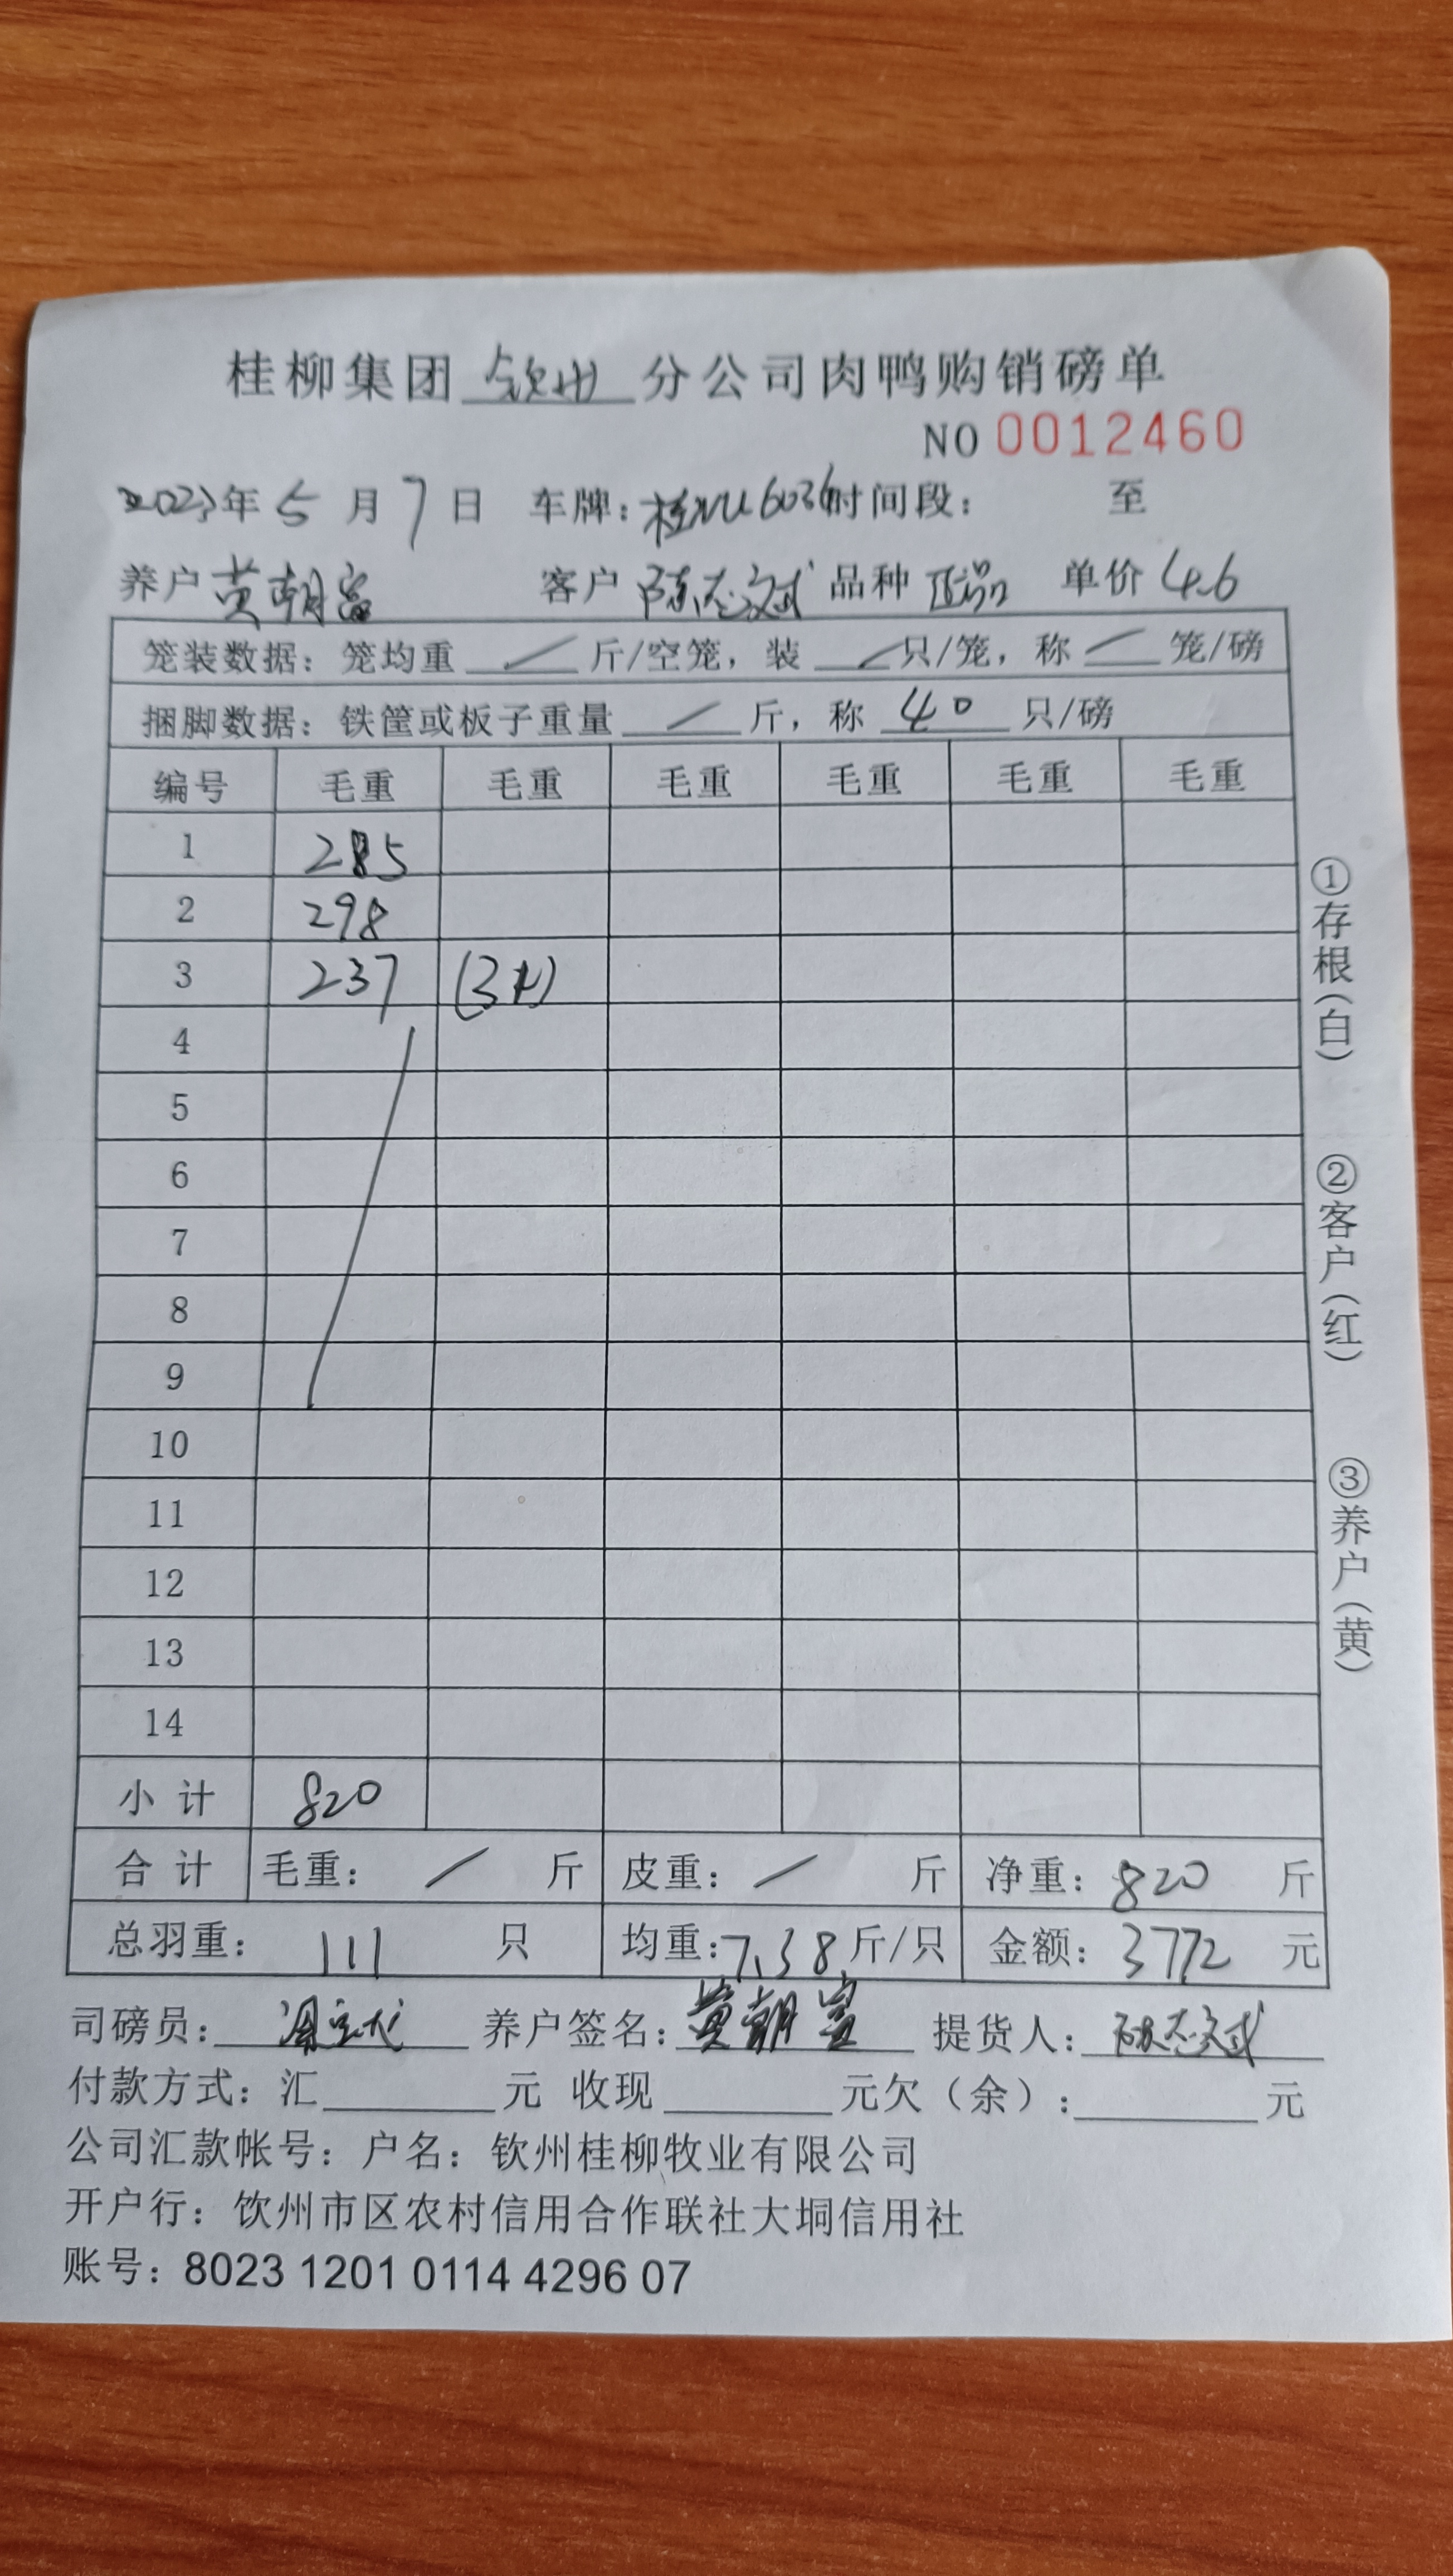 桂柳集团 钦州 分公司肉鸭购销磅单
NO 0012460
2023年 5 月 7 日 车牌： 时间段： 至
养户 黄朝富 客户 陈志斌 品种 正品 单价 4.6
笼装数据：笼均重 / 斤/空笼，装 / 只/笼，称 / 笼/磅
捆脚数据：铁筐或板子重量 / 斤，称 40 只/磅
编号 毛重 毛重 毛重 毛重 毛重 毛重
1 285
2 298
3 237 (31)
4
5
6
7
8
9
10
11
12
13
14
小 计 820
合 计 毛重： / 斤 皮重： / 斤 净重：820 斤
总羽重： 111 只 均重：7.38 斤/只 金额：3772 元
司磅员： 养户签名：黄朝富 提货人：陈志斌
付款方式：汇 元 收现 元欠（余）： 元
公司汇款帐号：户名：钦州桂柳牧业有限公司
开户行：饮州市区农村信用合作联社大垌信用社
账号：8023 1201 0114 4296 07
①存根（白）
②客户（红）
③养户（黄）